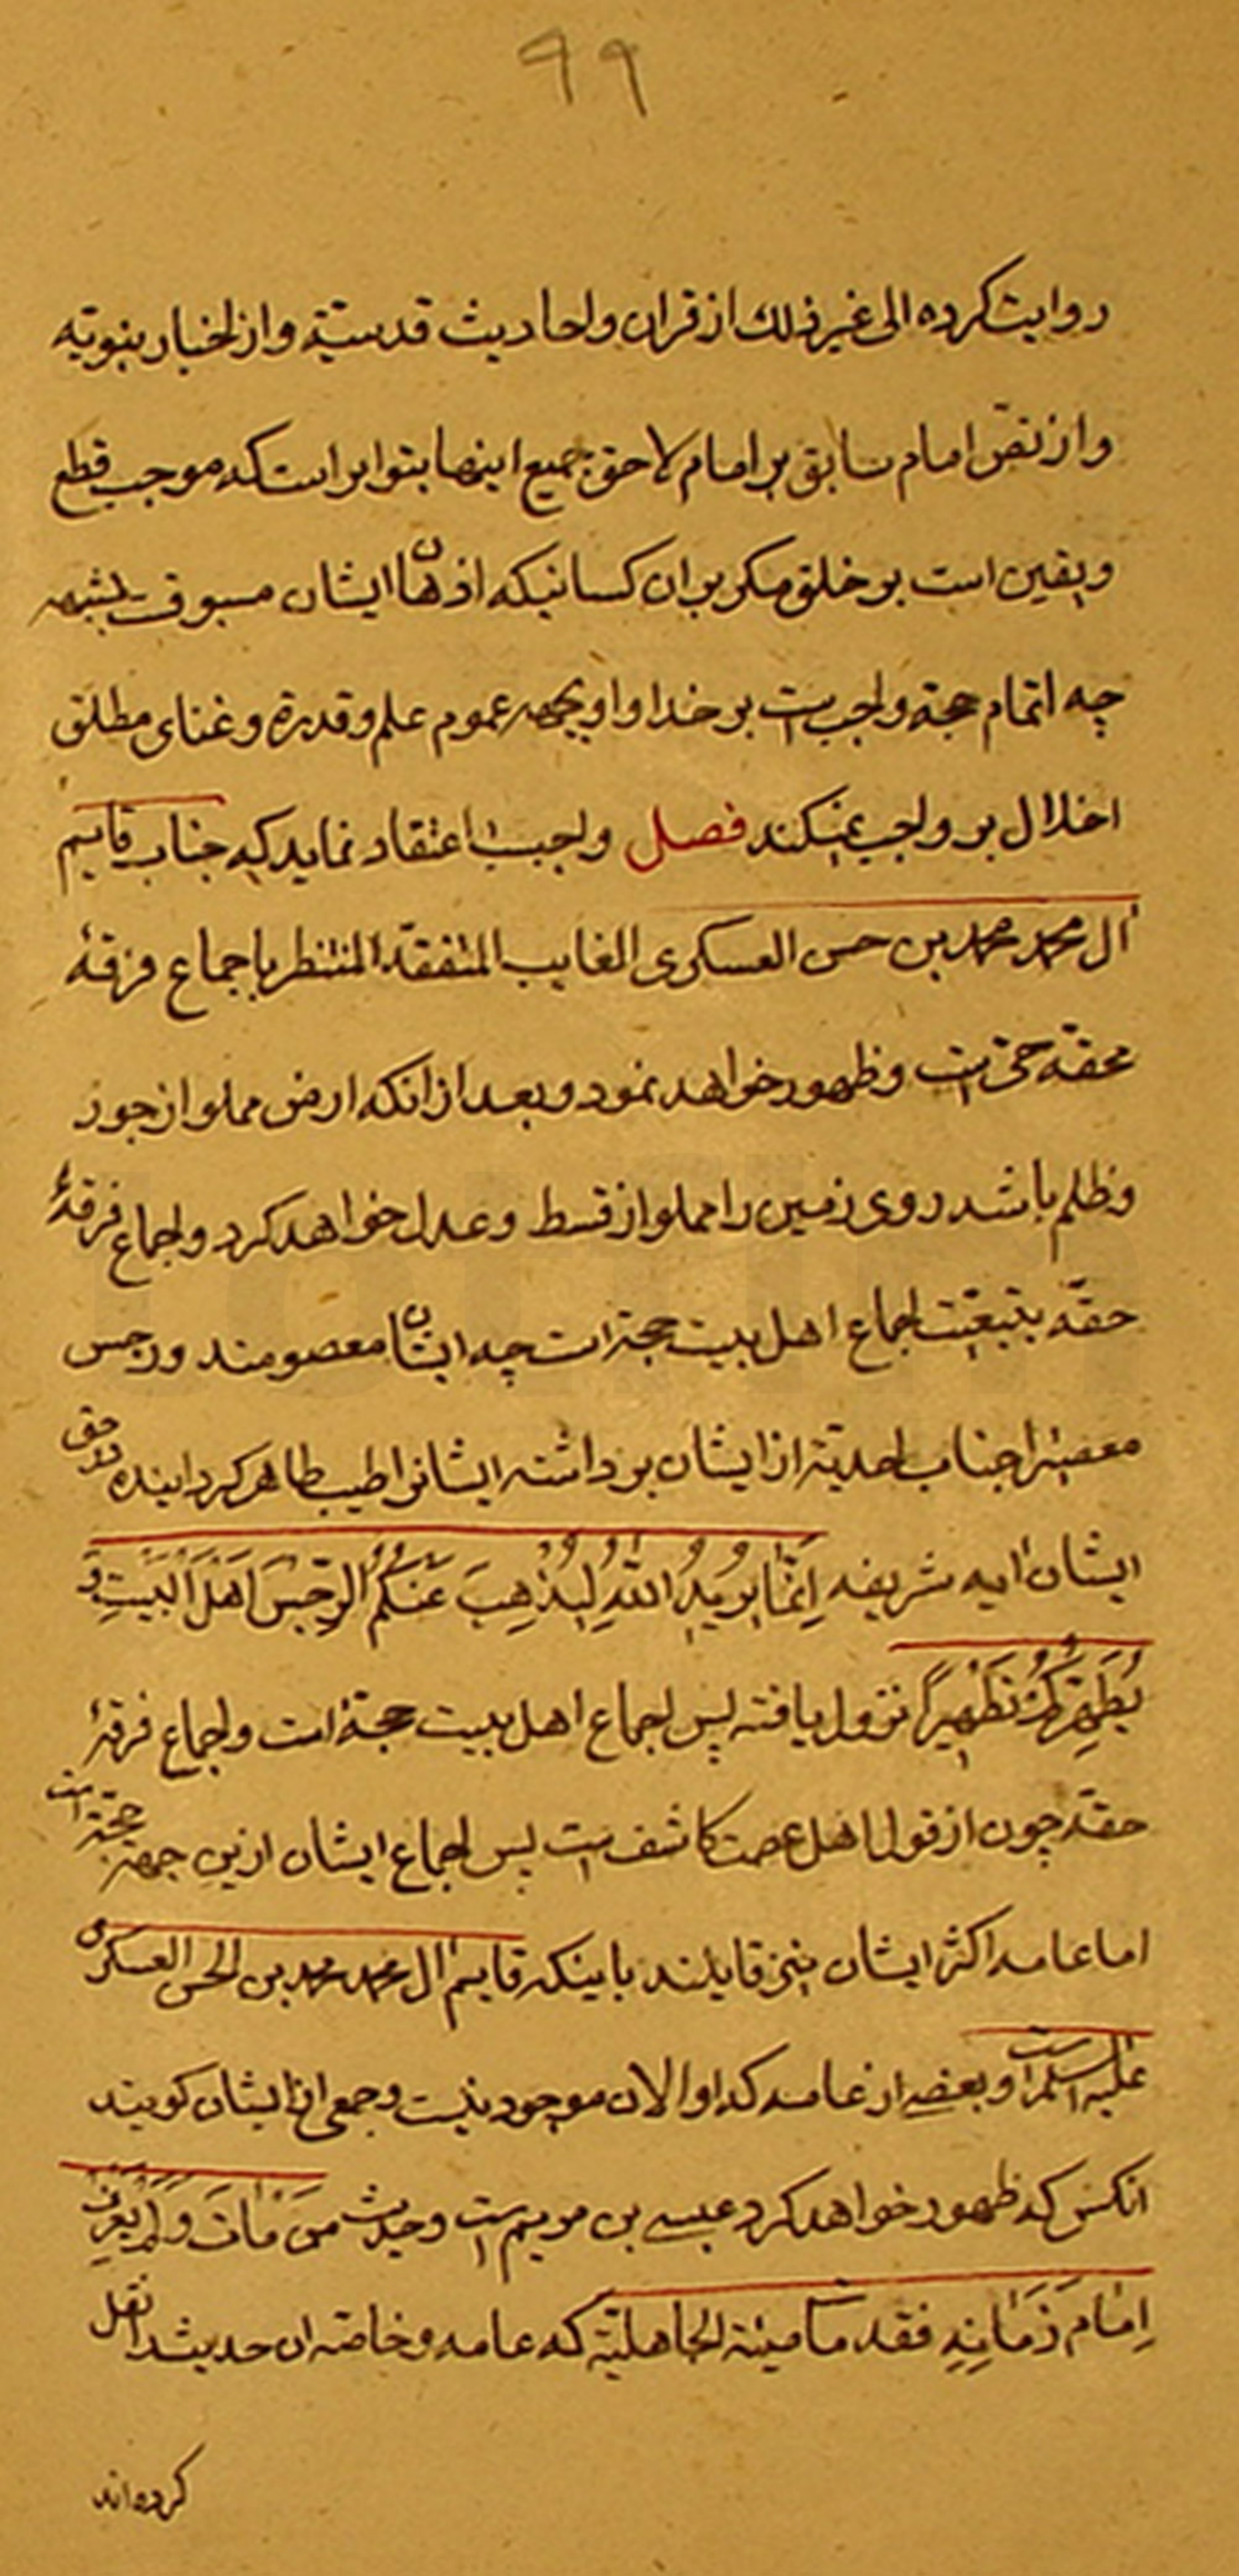 ٩٩
روایت کرده الی غیر ذلک از قران و احادیث قدسیّه و از اخبار نبویّه
و از نصّ امام سابق بر امام لاحق جمیع اینها بتواتر است که موجب قطع
و یقین است بر خلق مکر بر ان کسانیکه اذهان ایشان مسبوق بشبهه
چه اتمام حجة واجب است بر خدا و او بجهه عموم علم و قدرة و غنای مطلق
اخلال بر واجب نمیکند فصل واجبست اعتقاد نماید که جناب قایم
ال محمد محمد بن حسن العسکری الغایب المتفقد المنتظر باجماع فرقهٔ
محقه حق است و ظهور خواهد نمود و بعد از انکه ارض مملو از جور
و ظلم باشد روی زمین را مملو از قسط و عدل خواهد کرد و اجماع فرقهٔ
حقّه بتبعیّت اجماع اهل بیت حجة است چه ایشان معصومند و رجس
معصیترا جناب احدیّة از ایشان برداشته ایشانرا طیب طاهر کردانیده در حق
ایشان ایه شریفه اِنَّما یُریدُ اللّهُ لِیُذْهِبَ عَنْکُمُ الرِّجْسَ اَهْلَ الْبَیْتِ وَ
یُطَهِّرَکُمْ تَطْهیراً نزول یافته پس اجماع اهل بیت حجة است و اجماع فرقهٔ
حقّه چون از قول اهل عصمت کاشف است پس اجماع ایشان ازین جهة حجّة است
اما عامه اکثر ایشان نیز قایلند باینکه قایم ال محمد محمد بن الحسن العسکری
علیه السلم است و بعضی از عامه که او الان موجود نیست و جمعی از ایشان کویند
انکس که ظهور خواهد کرد عیسی بن مریم است و حدیث من مٰاتَ وَ لَمْ یَعْرِفْ
اِمٰام زَمٰانِهِ فقد مات میتة الجاهلیّة که عامه و خاصّه ان حدیث را نقل
کرده‌اند